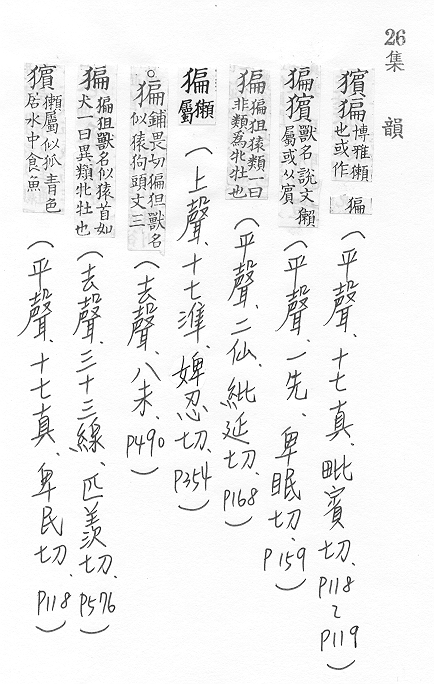 26 集韻
獱猵博雅獺也或作猵(平聲、十七真、毗賓切、P118~P119)
猵獱獸名說文獺屬或从賓(平聲、一先、卑眠切、P159)
猵猵狙猿類一曰非類為牝牡也(平聲、二仙、紕延切、P168)
猵獺屬(上聲、十七準、婢忍切、P354)
。猵鋪畏切猵狙獸名似猿狗頭文三(去聲、八未、P490)
猵猵狙獸名似猿首如犬一曰異類牝牡也(去聲、三十三線、匹羨切、P576)
獱獺屬似狐青色居水中食魚(平聲、十七真、卑民切、P118)